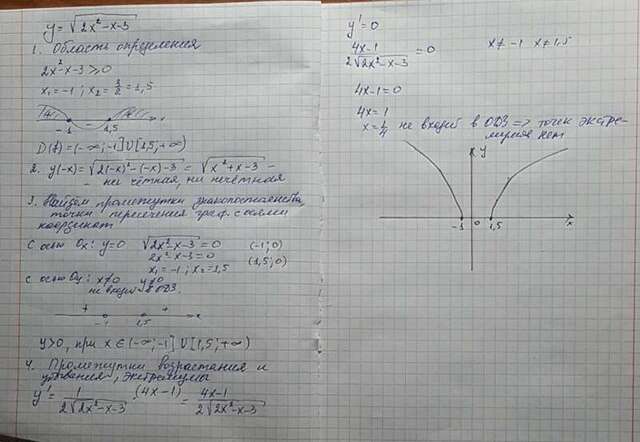 y = √(2x²-x-3)
1. Область определения
2x²-x-3 ≥ 0
x₁ = -1 ; x₂ = 3/2 = 1,5
-1 - 1,5 x
D(f) = (-∞; -1] U [1,5; +∞)
2. y(-x) = √(2(-x)²-(-x)-3) = √(x²+x-3) -
- ни чётная, ни нечётная
3. Найдем промежутки знакопостоянства,
точки пересечения граф. с осями
координат
С осью Ox: y=0 √(2x²-x-3) = 0 (-1; 0)
2x²-x-3=0
x₁ = -1 ; x₂ = 1,5 (1,5; 0)
с осью Oy: x≠0
не входит в ОДЗ.
+ -1 1,5 + x
y>0, при x ∈ (-∞; -1] U [1,5; +∞)
4. Промежутки возрастания и
убывания, экстремумы
y' = 1/(2√(2x²-x-3)) · (4x-1) = (4x-1)/(2√(2x²-x-3))
y' = 0
(4x-1)/(2√(2x²-x-3)) = 0 x ≠ -1 x ≠ 1,5
4x-1=0
4x=1
x = 1/4 не входит в ОДЗ => точек экстре-
мумов нет
y
-1 0 1,5 x